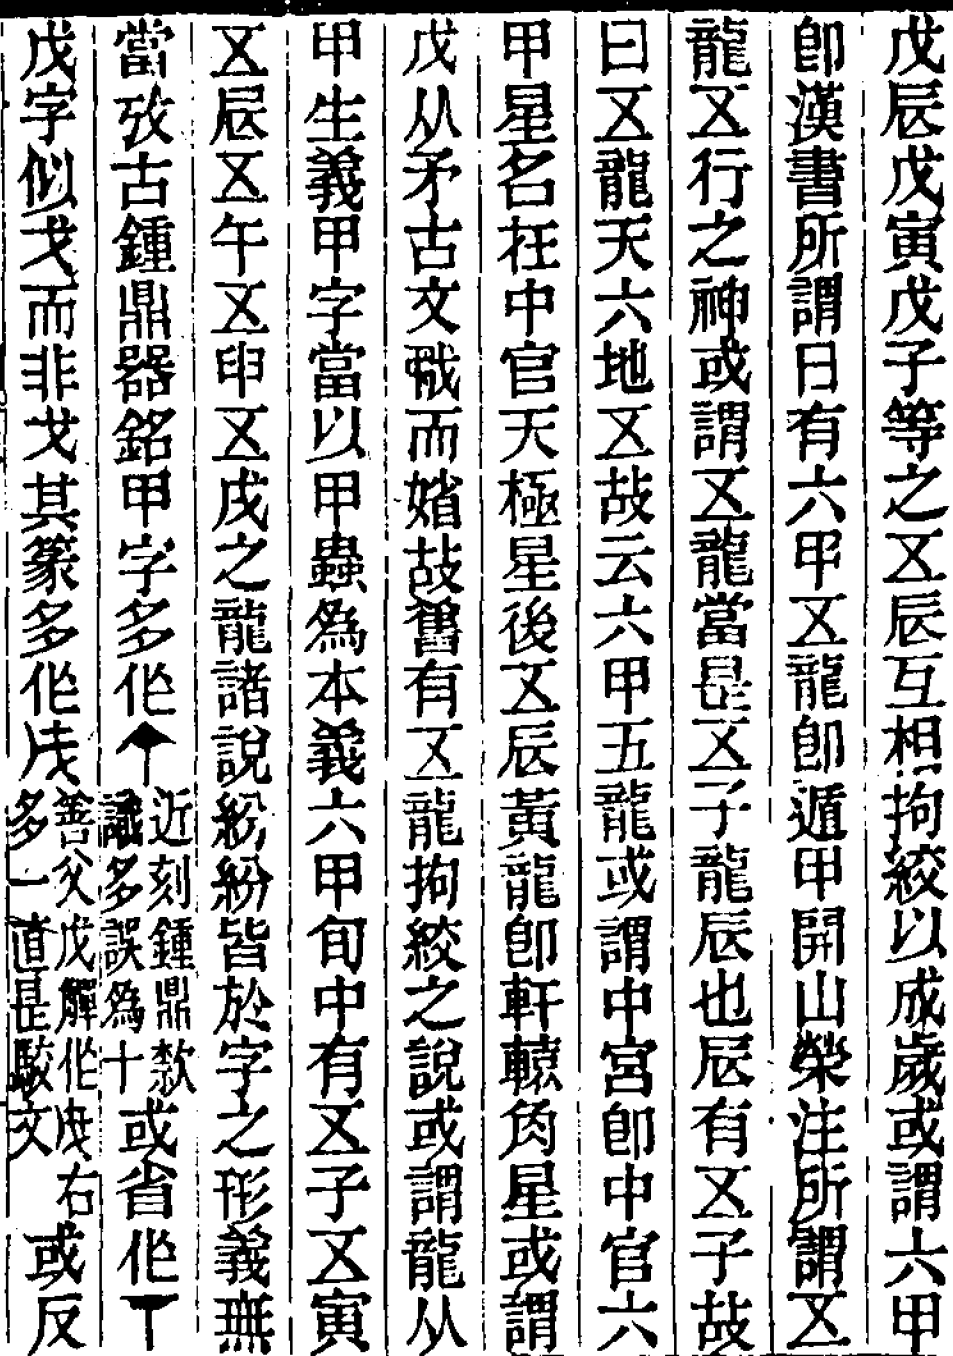 戊辰戊寅戊子等之㐅辰互相拘絞以成歲或謂六甲
卽漢書所謂日有六甲㐅龍卽遁甲開山榮注所謂㐅
龍㐅行之神或謂㐅龍當是㐅子龍辰也辰有㐅子故
曰㐅龍天六地㐅故云六甲五龍或謂中宮卽中官六
甲星名在中官天極星後㐅辰黃龍卽軒轅角星或謂
戊从矛古文而㛗故舊有㐅龍拘絞之說或謂龍从
甲生義甲字當以甲蟲爲本義六甲旬中有㐅子㐅寅
㐅辰㐅午㐅申㐅戌之龍諸說紛紛皆於字之形義無
當攷古鍾鼎器銘甲字多作近刻鍾鼎款識多誤爲十或省作丅
戊字似戈而非戈其篆多作善父戊觶作右多一直是駁文或反